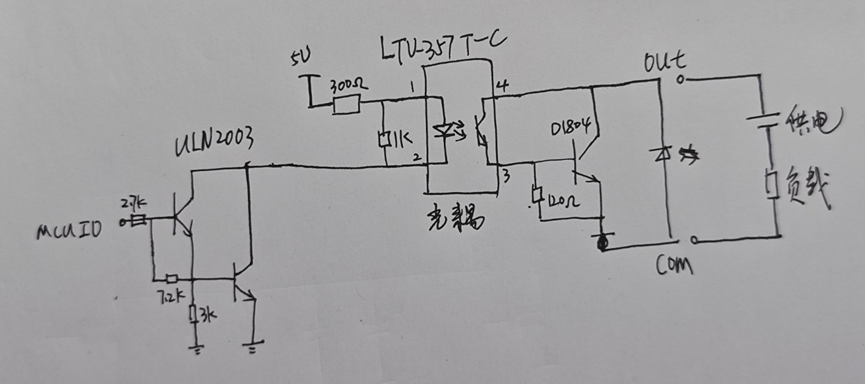 LTV-357T-C
5V
300Ω
1
4
OUT
ULN2003
1K
D1804
供电
2
3
2.7K
120Ω
负载
MCU IO
光耦
COM
7.2K
3K